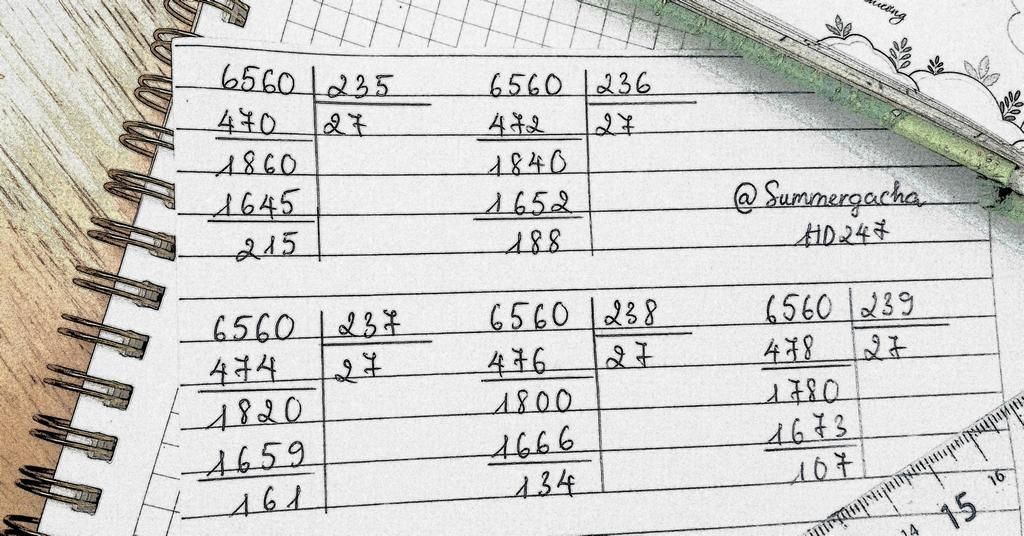 6560 235
470 27
1860
1645
215
6560 236
472 27
1840
1652
188
@Summergacha
HD247
6560 237
474 27
1820
1659
161
6560 238
476 27
1800
1666
134
6560 239
478 27
1780
1673
107
14 15 16